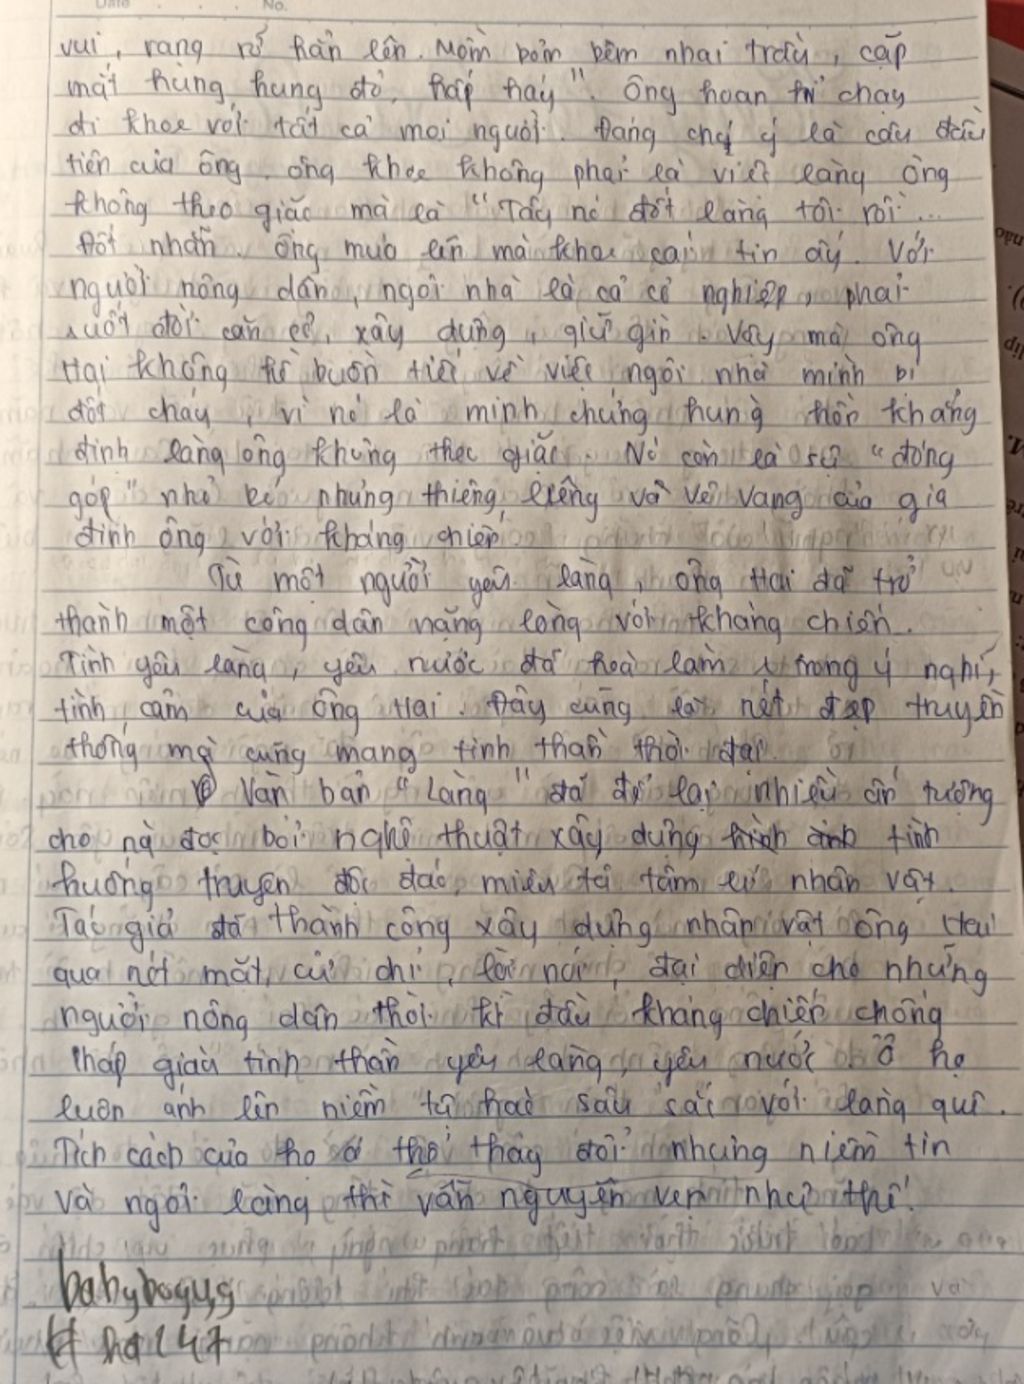 vui, rạng rỡ hẳn lên. Mồm bỏm bẻm nhai trầu, cặp
mắt hung hung đỏ, hấp háy". Ông hoan hỉ chạy
đi khoe với tất cả mọi người. Đáng chú ý là câu đầu
tiên của ông, ông khoe không phải là việc làng ông
không theo giặc mà là "Tây nó đốt làng tôi rồi...
Đốt nhẵn. Ông múa lên mà khoe cái tin ấy. Với
người nông dân, ngôi nhà là cả cơ nghiệp, phải
suốt đời căn cơ, xây dựng, giữ gìn. Vậy mà ông
Hai không hề buồn tiếc về việc ngôi nhà mình bị
đốt cháy, vì nó là minh chứng hùng hồn khẳng
định làng ông không theo giặc. Nó còn là sự "đóng
góp" nhỏ bé nhưng thiêng liêng và vẻ vang của gia
đình ông với kháng chiến.
Từ một người yêu làng, ông Hai đã trở
thành một công dân nặng lòng với kháng chiến.
Tình yêu làng, yêu nước đã hoà làm trong ý nghĩ,
tình cảm của ông Hai. Đây cũng là nét đẹp truyền
thống mà cũng mang tinh thần thời đại.
Văn bản "Làng" đã để lại nhiều ấn tượng
cho nà đọc bởi nghệ thuật xây dựng hình ảnh tình
huống truyện độc đáo, miêu tả tâm lí nhân vật.
Tác giả đã thành công xây dựng nhân vật ông Hai
qua nét mặt, cử chỉ, lời nói, đại diện cho những
người nông dân thời kì đầu kháng chiến chống
Pháp giàu tinh thần yêu làng, yêu nước. Ở họ
luôn ánh lên niềm tự hào sâu sắc với làng quê.
Tích cách của họ có thể thay đổi nhưng niềm tin
và ngôi làng thì vẫn nguyên vẹn như thế!
babyboguss